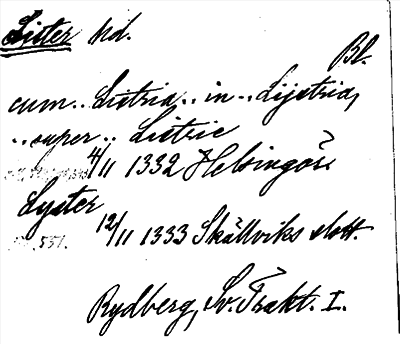 Lister hd.
Bl.
cum.. Listria.. in.. Lijstria,
..super.. Listrie
4/11 1332 Helsingör.
Lyster
12/11 1333 Skällviks slott.
551.
Rydberg, Sv. Trakt. I.